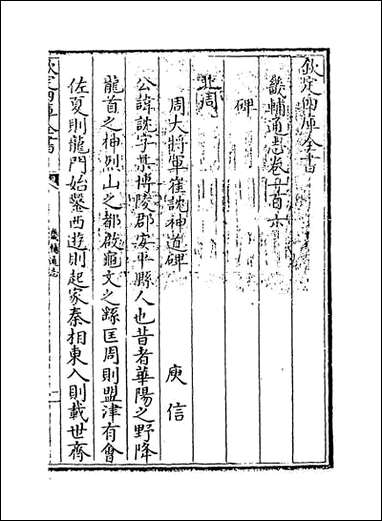 欽定四庫全書
畿輔通志卷一百六
碑
北周
周大將軍崔說神道碑　庾信
公諱說字某博陵郡安平縣人也昔者華陽之野降
龍首之神烈山之都啟龜文之繇匡周則盟津有會
佐夏則龍門始鑿西遊則起家秦相東入則載世齊
欽定四庫全書
畿輔通志
一